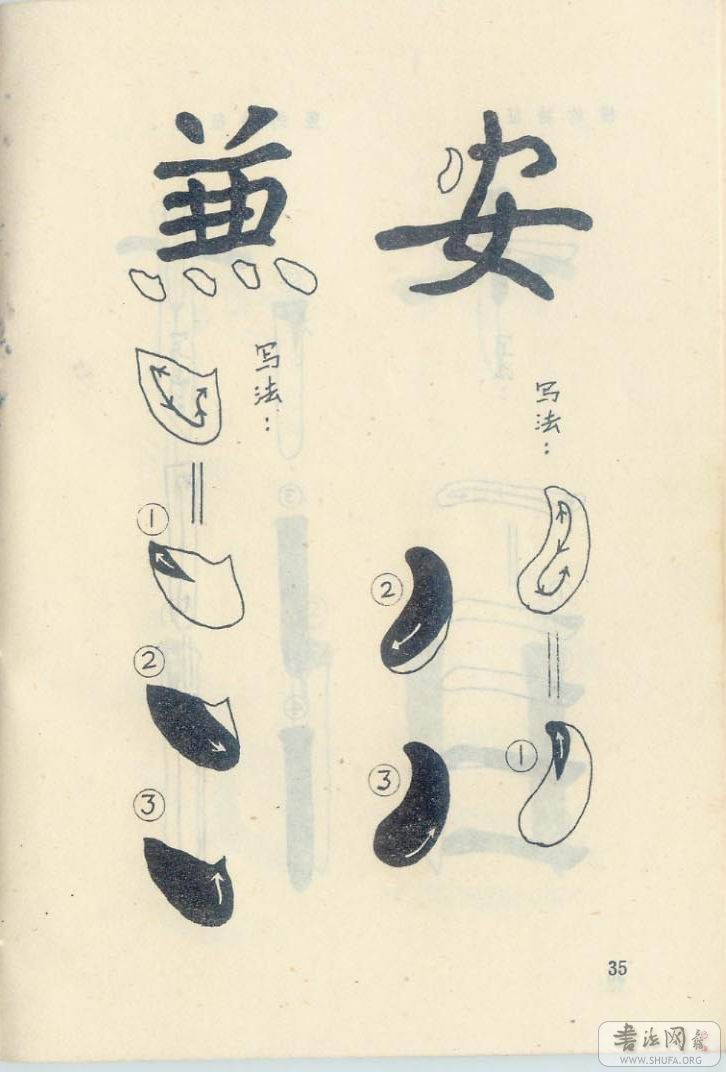 安
写法：
①
②
③
兼
写法：
①
②
③
35
書法网
WWW.SHUFA.ORG